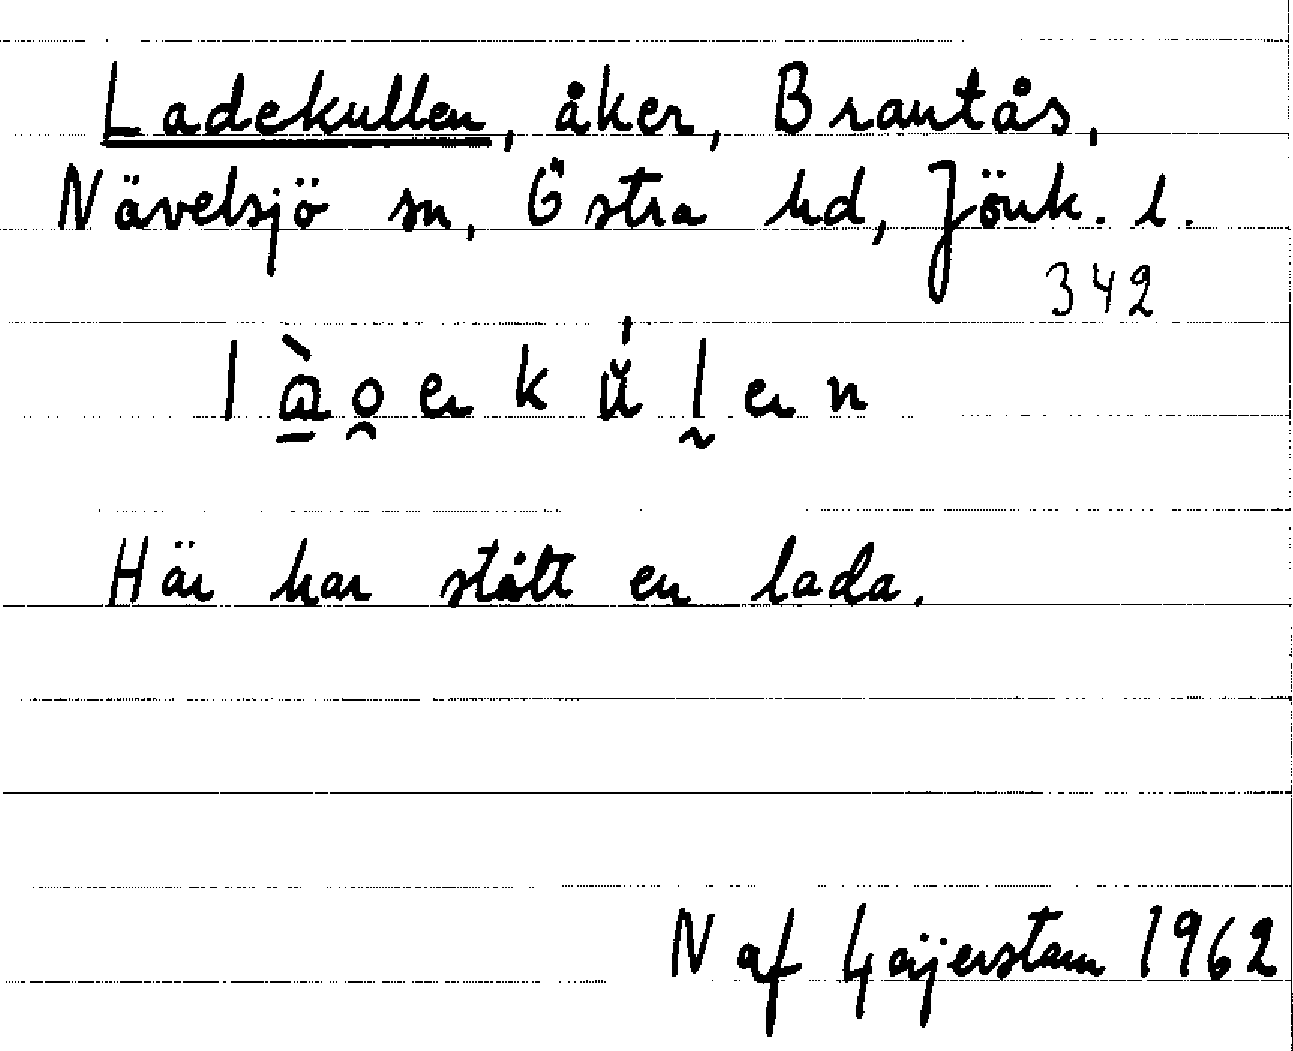 Ladekullen, åker, Brantås,
Nävelsjö sn, Östra hd, Jönk. l.
342
Här har stått en lada.
N af Gäijerstam 1962